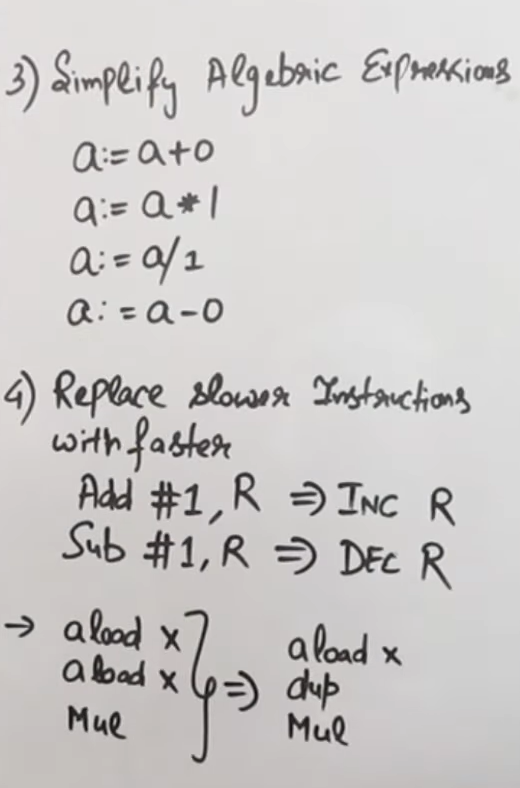 3) Simplify Algebraic Expressions
a:= a+0
a:= a*1
a:= a/1
a:= a-0
4) Replace slower Instructions
with faster
Add #1, R ⇒ INC R
Sub #1, R ⇒ DEC R
→ aload x
aload x
Mul
} ⇒
aload x
dup
Mul